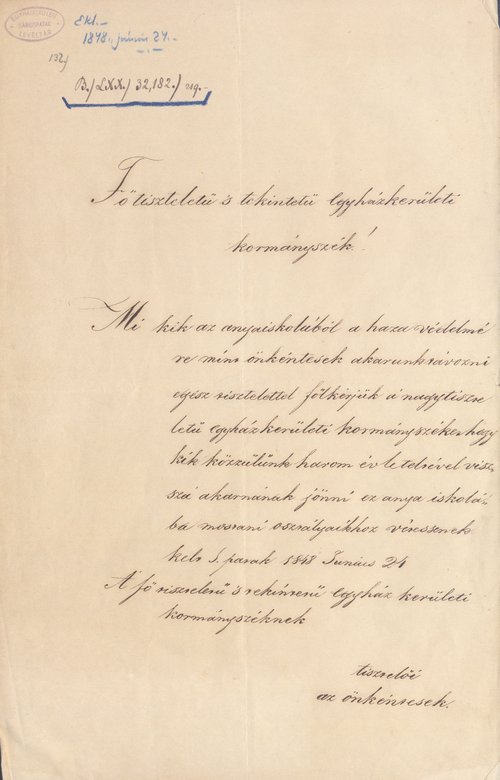 EGYHÁZKERÜLETI
SÁROSPATAK
LEVÉLTÁR
Ekl.-
1848. június 24.-
132)
B./LXX./32,182./
Főtiszteletű 's tekintetű Egyházkerületi
kormányszék!
Mi kik az anyaiskolából a haza védelmé
re mint önkéntesek akarunk távozni
egész tisztelettel fölkérjük a' nagytiszte
letű egyházkerületi kormányszéket hogy
kik közzűlünk három év leteltével visz
szá akarnának jönni ez anya iskolá-
ba mostani osztályaikhoz vétessenek
kelt S. patak 1848 Junius 24
A' fő tiszteletű 's tekintetű Egyház kerületi
kormányszéknek
tisztelői
az önkéntesek.